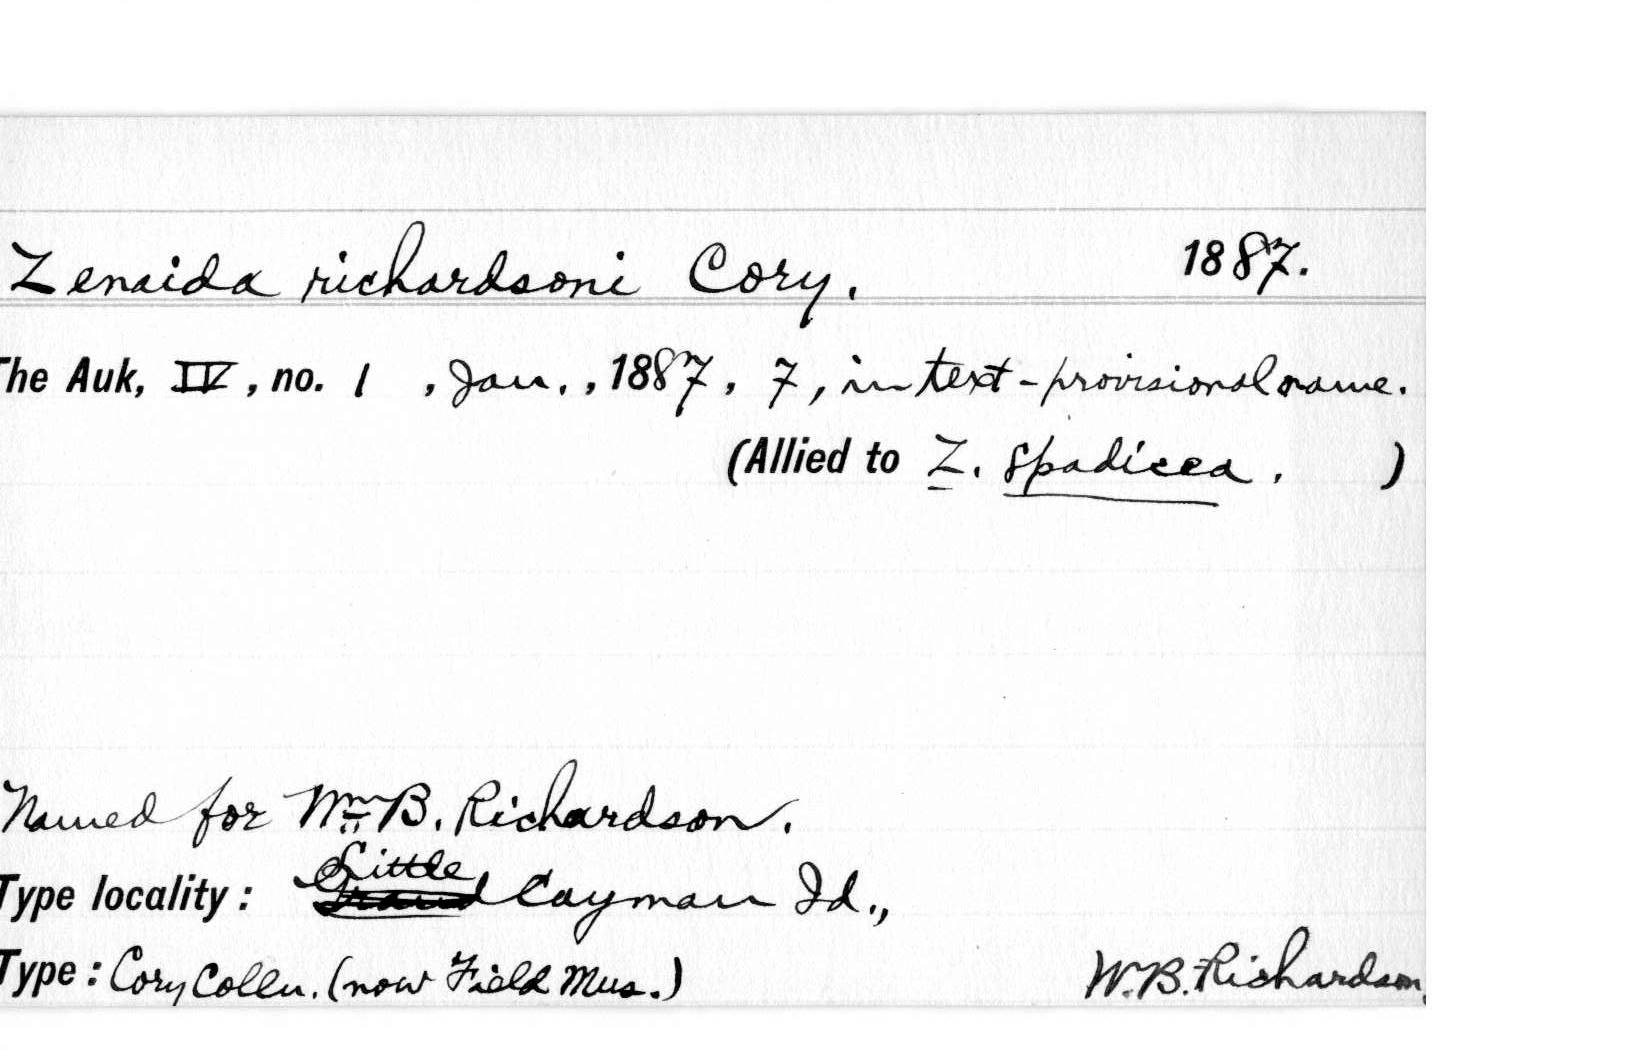 Zenaida richardsoni Cory. 1887.
The Auk, IV, no. 1, Jan., 1887, 7, in text - provisional name.
(Allied to Z. spadicea. )
Named for Wm B. Richardson.
Little
Type locality: Grand Cayman Id.,
Type: Cory Colln. (now Field Mus.) W.B. Richardson.